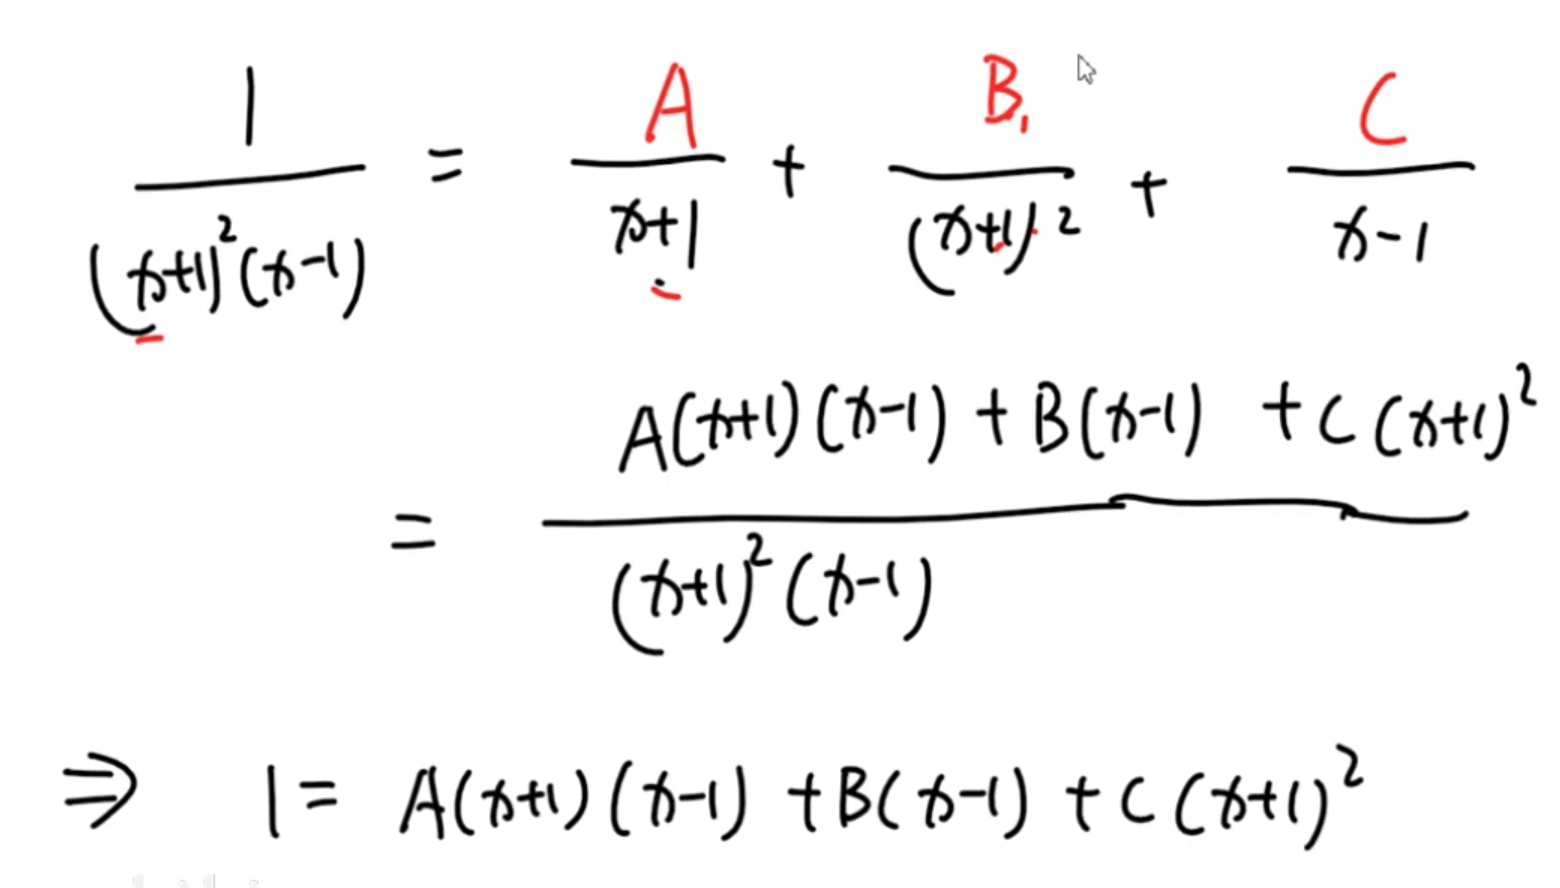 1/((x+1)²(x-1)) = A/(x+1) + B/((x+1)²) + C/(x-1)
= (A(x+1)(x-1) + B(x-1) + C(x+1)²)/((x+1)²(x-1))
⇒ 1 = A(x+1)(x-1) + B(x-1) + C(x+1)²